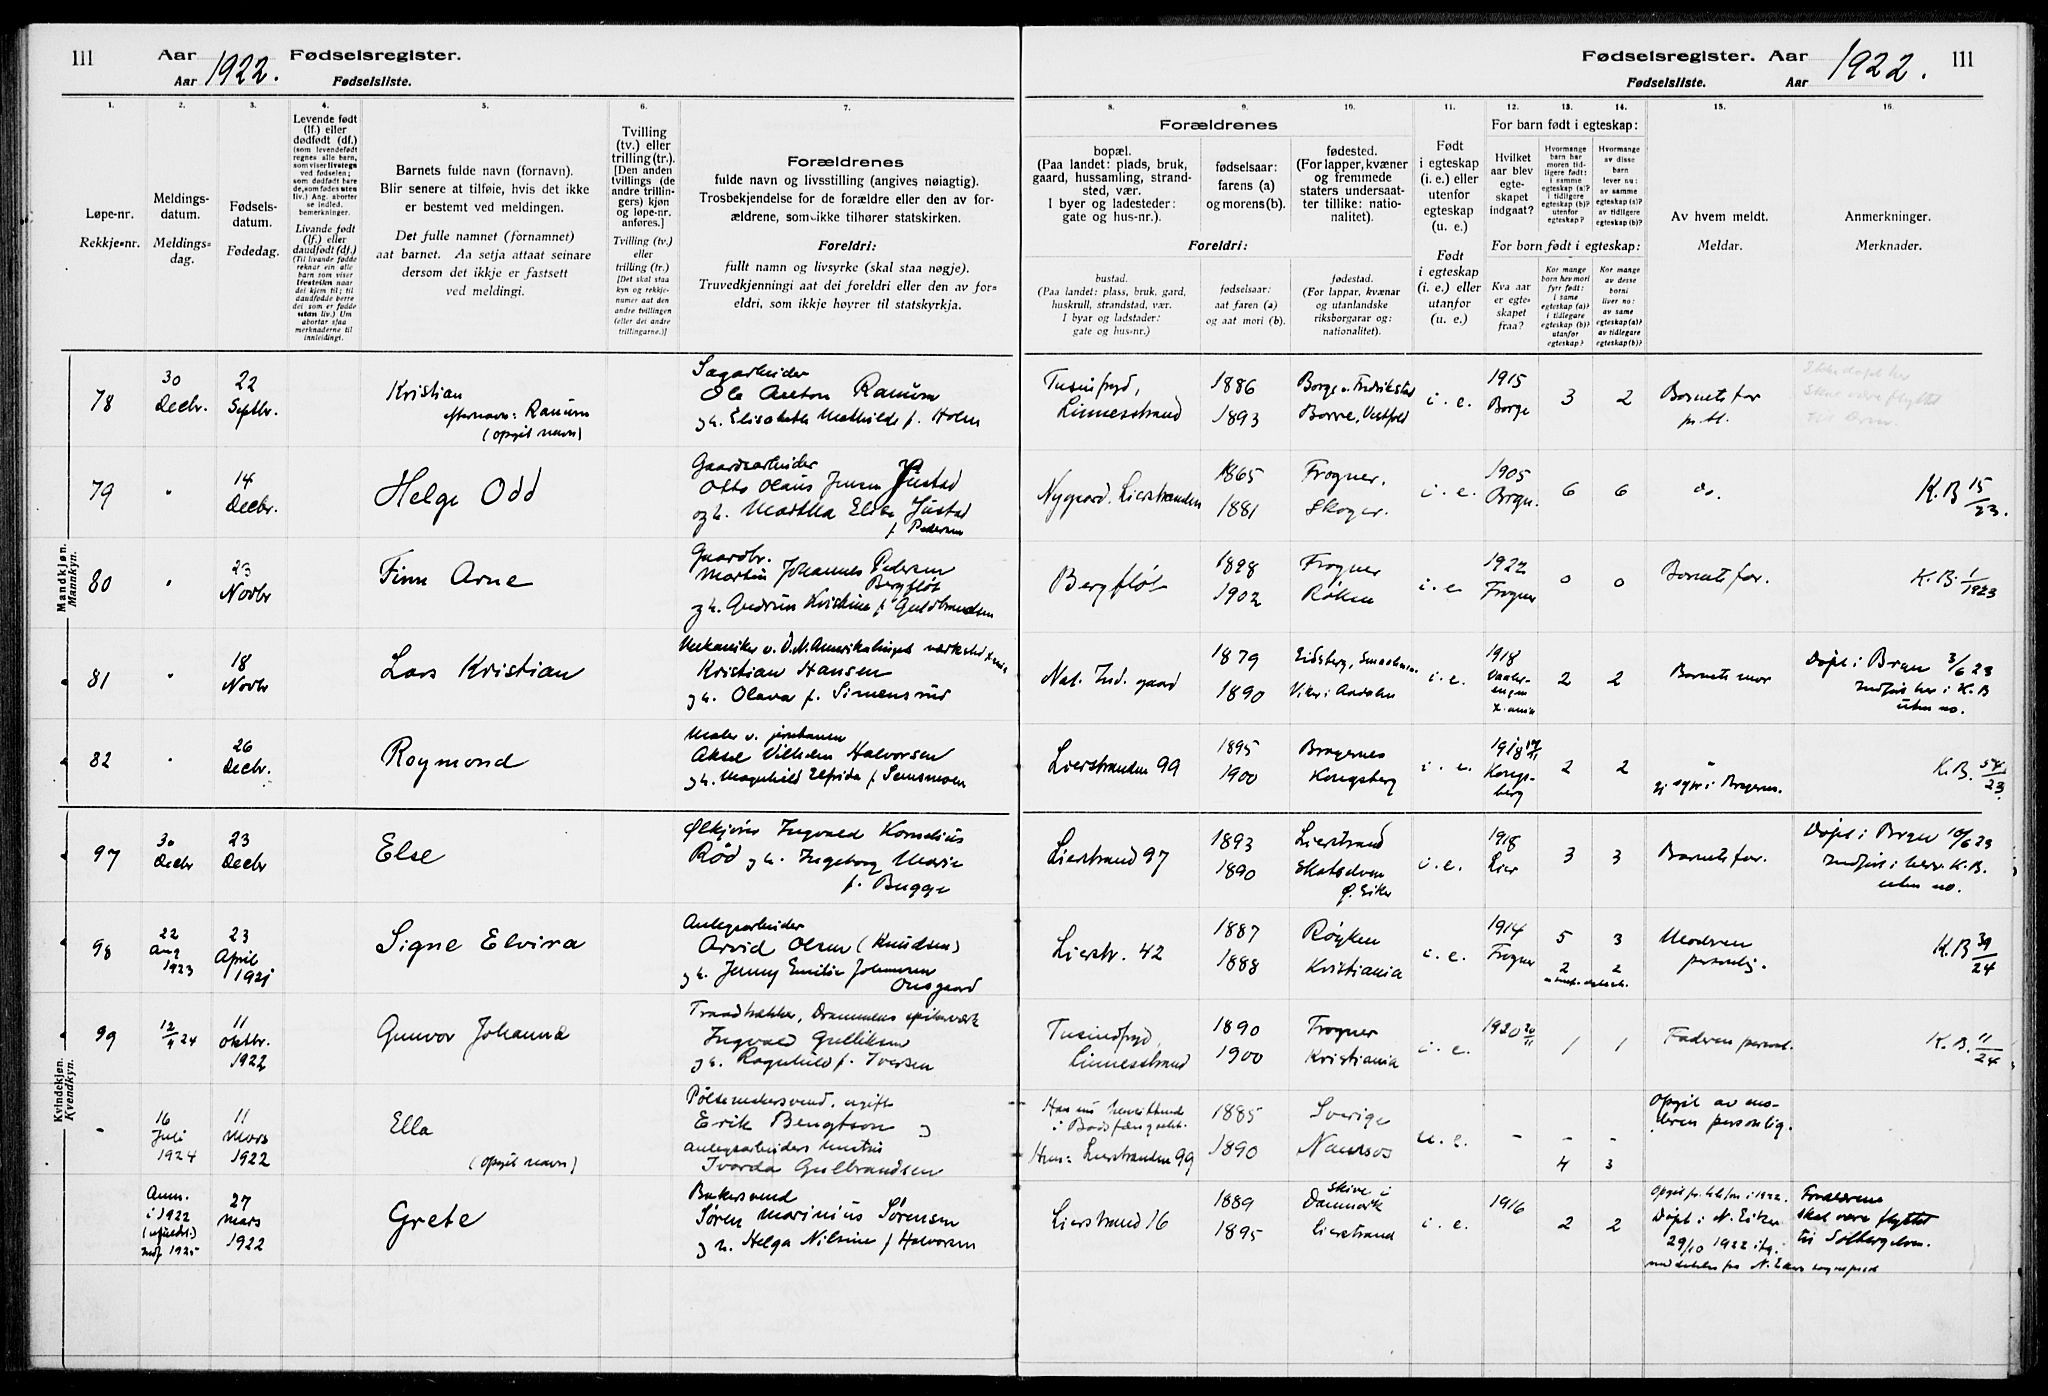 111
Aar
Aar
1922.
Fødselsregister.
Fødselsliste.
Fødselsregister.
Fødselsliste.
Aar
Aar
1922.
111
1.
Løpe-nr.
Rekkje-nr.
2.
Meldings-
datum.
Meldings-
dag.
3.
Fødsels-
datum.
Fødedag.
4.
Levende født
(lf.) eller
dødfødt (df.)
(som levendefødt
regnes alle barn,
som viser livstegn
ved fødselen;
som dødfødt bare
de, som fødes uten
liv.) Ang. aborter
se indled.
bemerkninger.
Livande fødd
(lf.) eller
daudfødt (df.)
(Til livande fødde
reknar ein alle
barn som viser
livsteikn naar
dei kjem til; til
daudfødde berre
dei som er fødde
utan liv.) Um
abortar sjaa
merknaderne til
innleidingi.
5.
Barnets fulde navn (fornavn).
Blir senere at tilføie, hvis det ikke
er bestemt ved meldingen.
Det fulle namnet (fornamnet)
aat barnet. Aa setja attaat seinare
dersom det ikkje er fastsett
ved meldingi.
6.
Tvilling
(tv.) eller
trilling (tr.).
[Den anden
tvillings (de
andre trillin-
gers) kjøn
og løpe-nr.
anføres.]
Tvilling (tv.)
eller
trilling (tr.)
[Det skal staa
kyn og rekkje-
numer aat den
andre tvillingen
(eller dei andre
trillingarne.)]
7.
Forældrenes
fulde navn og livsstilling (angives nøiagtig).
Trosbekjendelse for de forældre eller den av for-
ældrene, som ikke tilhører statskirken.
Foreldri:
fullt namn og livsyrke (skal staa nøgje).
Truvedkjenningi aat dei foreldri eller den av for-
eldri, som ikkje høyrer til statskyrkja.
8.
Forældrenes
bopæl.
(Paa landet: plads, bruk,
gaard, hussamling, strand-
sted, vær.
I byer og ladesteder:
gate og hus-nr.).
Foreldri:
bustad.
(Paa landet: plass, bruk, gard,
huskrull, strandstad, vær.
I byar og ladstader:
gate og hus-nr.)
9.
fødselsaar:
farens (a)
og morens (b).
fødselsaar:
aat faren (a)
og aat mori (b).
10.
fødested.
(For lapper, kvæner
og fremmede
staters undersaat-
ter tillike: natio-
nalitet).
fødestad.
(For lappar, kvænar
og utanlandske
riksborgarar og:
nationalitet).
11.
Født
i egteskap
(i. e.) eller
utenfor
egteskap
(u. e.)
Født
i egteskap
(i. e.) eller
utanfor
(u. e.)
12.
For barn født i egteskap:
Hvilket
aar blev
egte-
skapet
indgaat?
For born født i egteskap:
Kva aar
er egte-
skapet
fraa?
13.
Hvormange
barn har
moren tid-
ligere født:
i samme
egteskap (a)?
i tidligere
egteskap (b)?
utenfor
egteskap?
Kor mange
barn hev mori
fyrr født:
i same
egteskap (a)?
i tidlegare
egteskap (b)?
utanfor
egteskap?
14.
Hvormange
av disse
barn
lever nu:
av samme
egteskap (a)?
av tidligere
egteskap (b)?
Kor mange
av desse
borni
liver no:
av same
egteskap (a)?
av tidlegare
egteskap (b)?
15.
Av hvem meldt.
Meldar.
16.
Anmerkninger.
Merknader.
Mandkjøn.
Mannkyn.
78
30
Decbr.
22
Septbr.
Kristian
efternavn: Ranum
(opgit navn)
Sagarbeider
Ole Anton Ranum
og h. Elisabeth Mathilde f. Holm
Tusinfryd,
Linnesstrand
1886
1893
Borge v. Fredrikstad
Borre, Vestfold
i. e.
1915
Borge
3
2
Barnets far
pr. tl.
Ikke døpt her
Skal være flyttet
79
"
14
Decbr.
Helge Odd
Gaardsarbeider
Otto Olaus Jensen Justad
og h. Martha Elise Justad
f. Pedersen
Nygaard. Lierstranden
1865
1881
Frogner.
Skoger.
i. e.
1905
6
6
do.
K.B 15/23.
80
"
23
Novbr
Finn Arne
Gaardbr.
Martin Johannes Pedersen
Bergfløt
og h. Gudrun Kristine f. Guldbrandsen
Bergfløt
1898
1902
Frogner
Røken
i. e
1922
Frogner
0
0
Barnets far.
K.B. 1/1923
81
"
18
Novbr
Lars Kristian
Mekaniker v. D.N. Amerikalinjes verksted
Kristian Hansen
og h. Olava f. Simensrud
Nat. Ind. gaard
1879
1890
Eidsberg,
Viker i Aadalen
i. e.
1918
Vaaler-
engen
2
2
Barnets mor
Døpt i Bragn 3/6 23
Indført her i K.B
uten no.
82
"
26
Decbr.
Raymond
Maler v. jernbanen
Aksel Vilhelm Halvorsen
og h. Magnhild Elfrida f. Semsmoen
Lierstranden 99
1895
1900
Bragernes
Kongsberg
i. e.
1918 17/11
Kongs-
berg
2
2
"
K.B. 54/23
Kvindekjøn.
Kvendkyn.
97
30
Decbr
23
Decbr
Else
Ølkjører Ingvald Kornelius
Rød og h. Ingeborg Marie
f. Bugge
Lierstrand 97
1893
1890
Lierstrand
Skotselven
Ø. Eiker
i. e.
1918
Lier
3
3
Barnets far.
Døpt i Bragn 10/6 23
Indført i herv. K.B.
uten no.
98
22
Aug
1923
23
April
1921
Signe Elvira
Anlegsarbeider
Arvid Olsen (Knudsen)
og h. Jenny Emilie Johannesen
Onsgaard
Lierstr. 42
1887
1888
Røyken
Kristiania
i. e.
1914
Frogner
5
3
2
2
Moderen
personlig.
K.B 39/24
99
12/9 24
11
Oktbr.
1922
Gunvor Johanna
Traadtrækker, Drammens spikerverk
Ingvald Gulliksen
og h. Ragnhild f. Iversen
Tusindfryd,
Linnesstrand
1890
1900
Frogner
Kristiania
i. e.
1920 20/11
1
1
Faderen personl.
K.B. 11/24
-
16
Juli
1924
11
Mars
1922
Ella
(opgit navn)
Pølsemakersvend, ugift
Erik Bengtson og
anlegsarbeiders hustru
Ivarda Gulbrandsen
Han nu
i Bodsfængselet.
Hun: Lierstranden 99
1885
1890
Sverige
Namsos
u. e.
-
-
-
4
3
Opgit av mo-
deren personlig.
Anm.
i 1922
indf 1925
27
Mars
1922
Grete
Bakersvend
Søren Marinius Sørensen
og h. Helga Nilsine f. Halvorsen
Lierstrand 16
1889
1895
Skive i
Danmark
Lierstrand
i. e.
1916
2
2
Opgit pr. telefon i 1922.
Døpt i N. Eiker
29/10 1922 iflg.
meddelelse fra N. Eikers sogneprest
Forældrene
skal være flyttet
til Solbergelven.